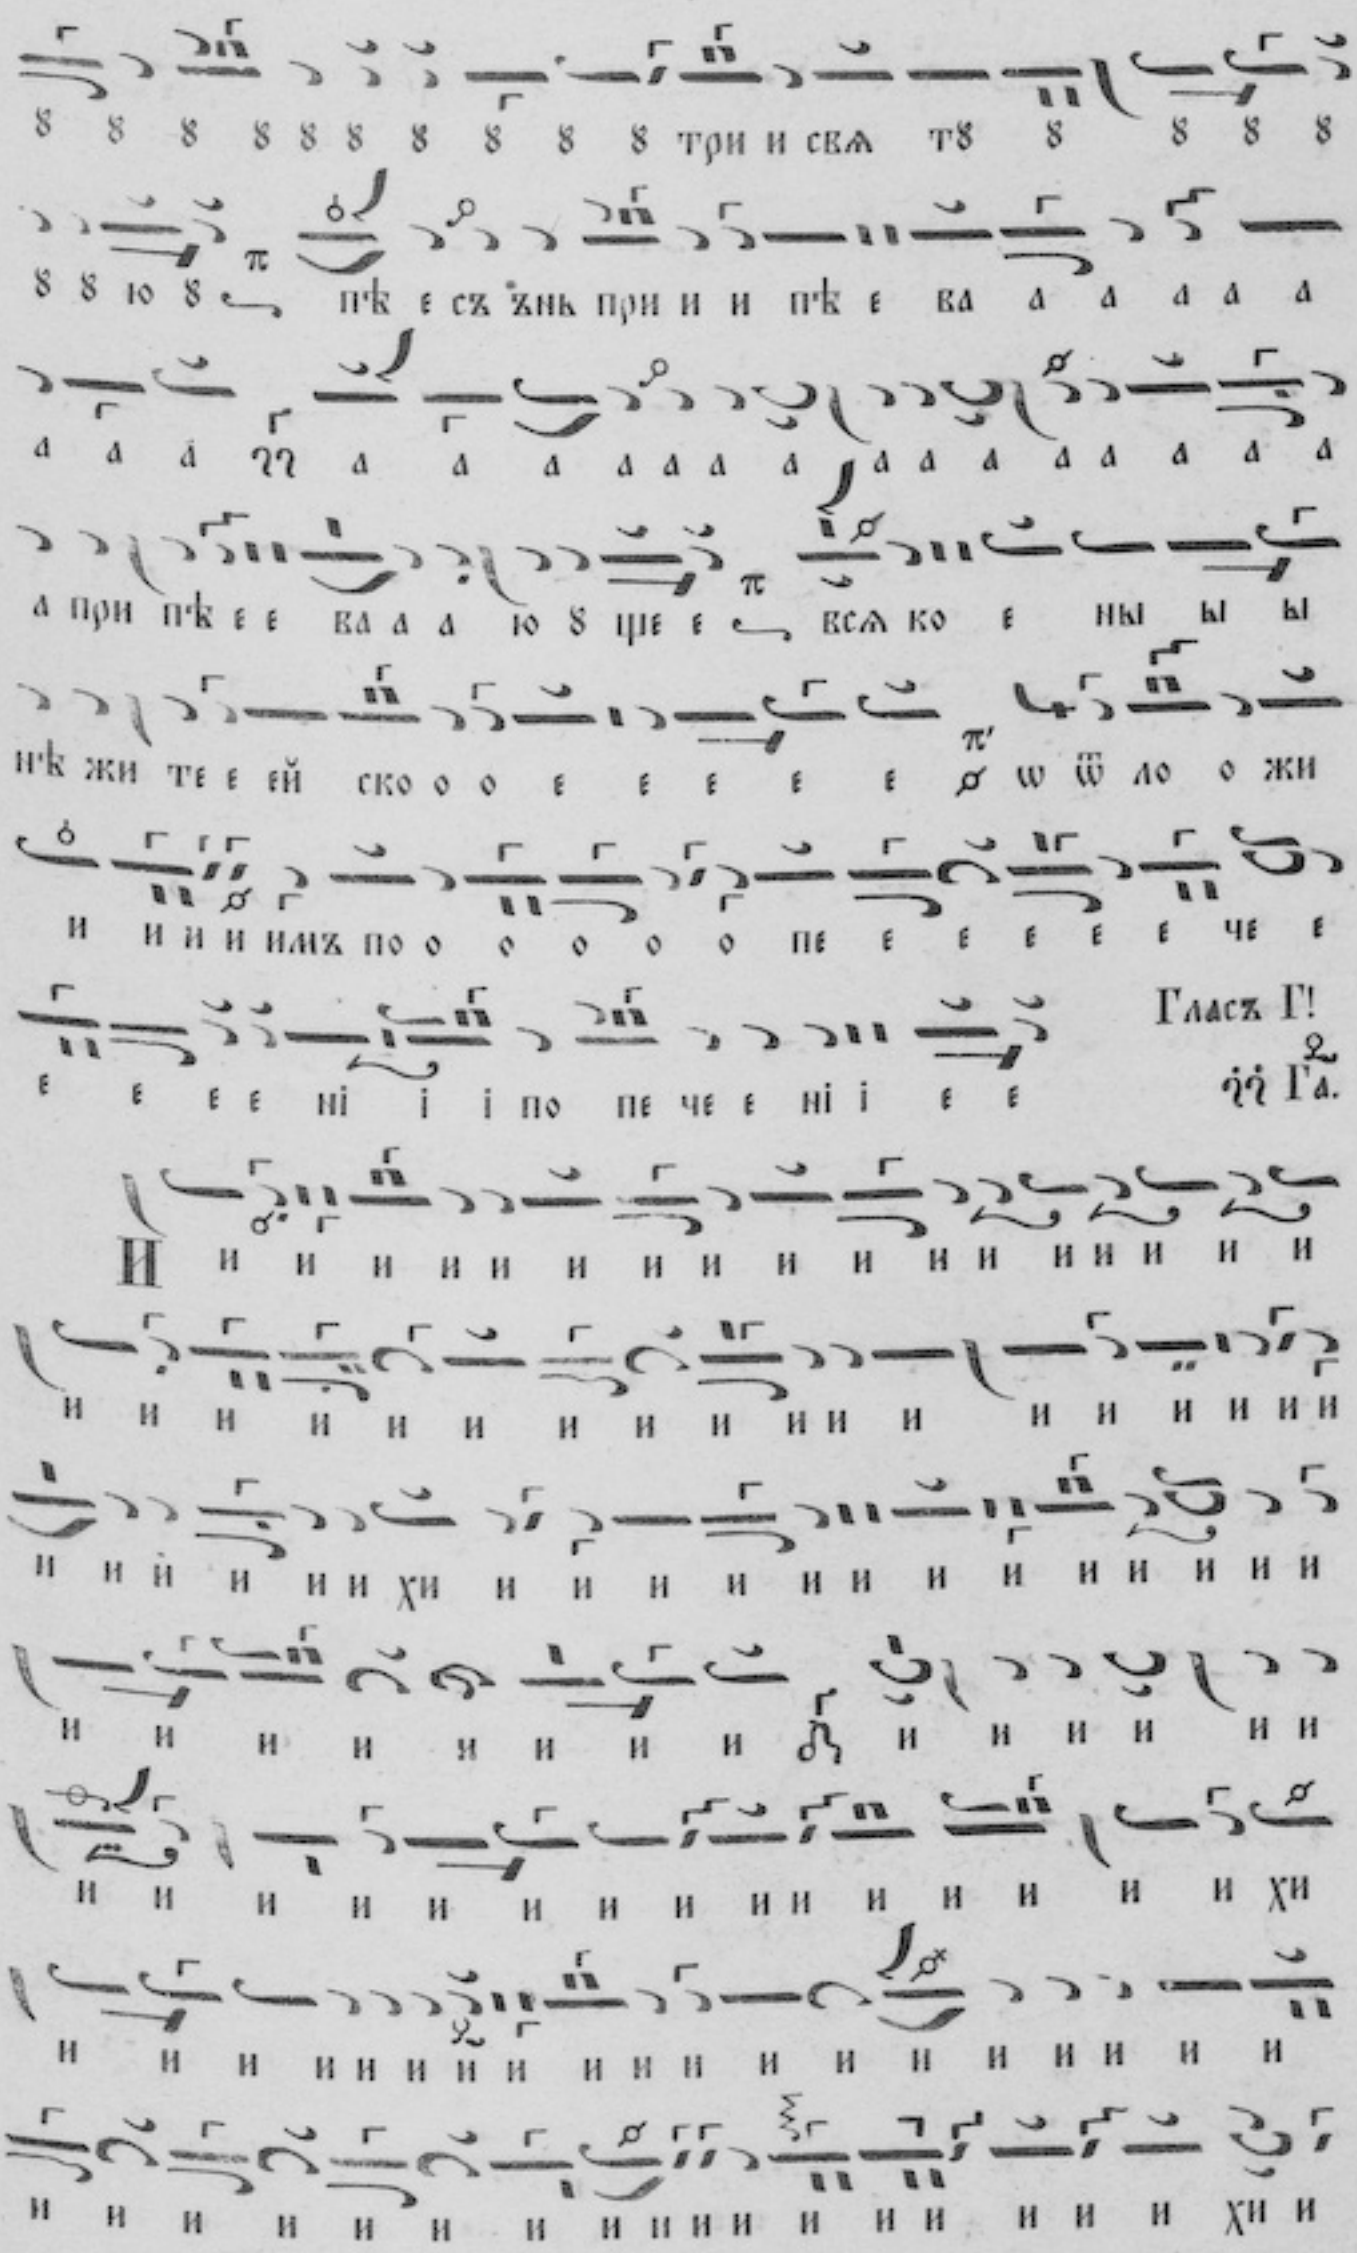 ꙋ ꙋ ꙋ ꙋ ꙋ ꙋ ꙋ ꙋ ꙋ ꙋ три и свѧ тꙋ ꙋ ꙋ ꙋ ꙋ
ꙋ ꙋ ю ꙋ π пѣ е съ ънь при и и пѣ е ва а а а а а
а а а а а а а а а а а а а а а а а а
а при пѣ е е ва а а ю ꙋ ще е π всѧ ко е ны ы ы
нѣ жи те е ей ско о о е е е е е π' ѡ ѿ ло о жи
и и и и имъ по о о о о о пе е е е е е че е
е е е е ні і і по пе че е ні і е е Гласъ Г! Га.
И и и и и и и и и и и и и и и и и и
и и и и и и и и и и и и и и и и и и
и и и и и и хи и и и и и и и и и и и и и
и и и и и и и и и и и и и и
и и и и и и и и и и и и и и и хи
и и и и и и и и и и и и и и и и и и и
и и и и и и и и и и и и и и и и и хи и